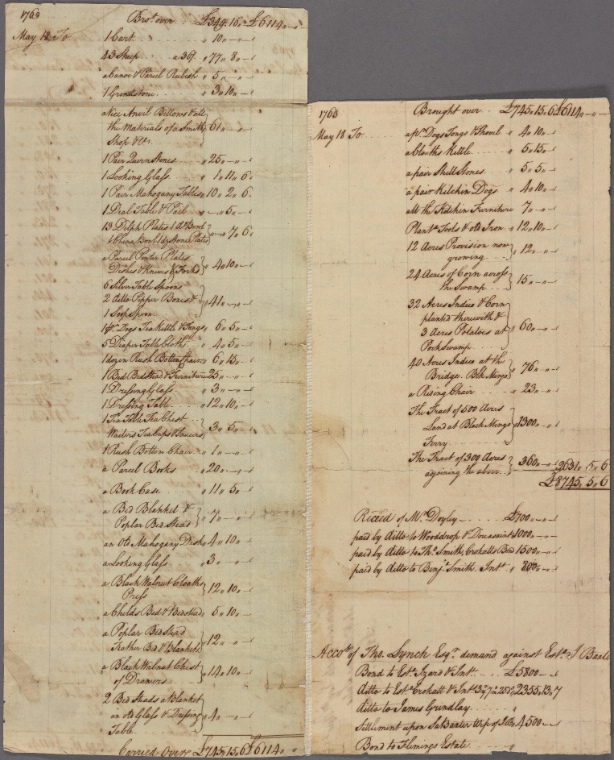 1763 Bro.t over £349.16.„ £6114„-„-
May 18 To 1 Cart „ 10„-„-
43 Sheep a 36/. „ 77„ 8„-
a Canoe & Parcel Rubish „ 5„-„-
1 Grindstone „ 3„10„-
a Nice Anvil Bellows & all
the Materials of a Smith 61„-„-
Shop &c.
1 Pair Quern Stones „25„-„-
1 Looking Glass „ 1„10„6
1 Pair Mahogany Tables „10„2„6
1 Deal Table & „-„5„-
13 Delph Plates 1 do. Bowl
& China Bowl & 2 Stone Plates „ 7„6
a Parcel Pewter Plates
Dishes & Knives & Forks „ 4„10„-
6 Silver Table Spoons
2 ditto Pepper Boxes & 41„-„-
1 Soop spoon
1 pr. Dogs Tea Kettle & Tongs „ 6„5„-
5 Diaper Table Cloths „ 4„5„-
1 dozen Rush Bottom Chairs „ 6„15„-
1 Bed Bedstead & Furniture „25„-„-
1 Dressing Glass „ 3„-„-
1 Dressing Table „12„10„-
1 Tea Table Tea Chest
Waiters Tea Cups & Saucers „ 3„5„-
1 Rush Bottom Chair „ 1„-„-
a Parcel Books „20„-„-
a Book Case „11„5„-
a Bed Blanket &
Poplar Bed Stead „ 7„-„-
an old Mahogany Desk „ 4„10„-
a Looking Glass „ 3„-„-
a Black Walnut Cloaths
Press 12„10„-
a Childs Bed & Bedstead „ 5„10„-
a Poplar Bedstead
Feather Bed & Blankets „12„-„-
a Black Walnut Chest
of Drawers „14„10„-
2 Bed Steads a Blanket
an old Glass & Dressing „ 4„-„-
Table
Carried Over £745„15„6 £6114„-
1763 Brought over £745„15„6 £6114„-„-
May 18 To a pr. Dogs Tongs & Shovel „ 4„10„-
a Cloaths Kettle „ 5„15„-
a pair Skill Stones „ 5„5„-
a pair Kitchen Dogs „ 4„10„-
all the Kitchen Furniture „ 7„-„-
Plantn. Tools & old Iron „ 12„10„-
12 Acres Provision now
growing „ 12„-„-
24 Acres of Corn across
the Swamp „ 15„-„-
32 Acres Indico & Corn
planted therewith &
3 Acres Potatoes at „ 60„-„-
Porkswamp
40 Acres Indico at the
Bridge „ 76„-„-
a Riding Chair „ 23„-„-
The Tract of 500 Acres
Land at Black Mingo 1300„-„-
Ferry
The Tract of 300 Acres
ajoining the above „ 360„-„- 2631„5„6
£8745„5„6
Received of Mr. Doyley £700„-„-
paid by ditto to Wooddrop & Doussaint 1000„-„-
paid by ditto to Thos. Smith, Crokatts Bond 1500„-„-
paid by ditto to Benja. Smith. Intt. „ 800„-„-
Accott. of Tho. Lynch Esqr. demand against Esta. J Baxter
Bond to Esta. Izard & Intt. £5800„-„-
ditto to Esta. Crokatt & Intt. 2355„13„7
ditto to James Grundlay
Settlement upon Sa. Baxter Wife of 4500„-„-
Bond to Flemings Estate „